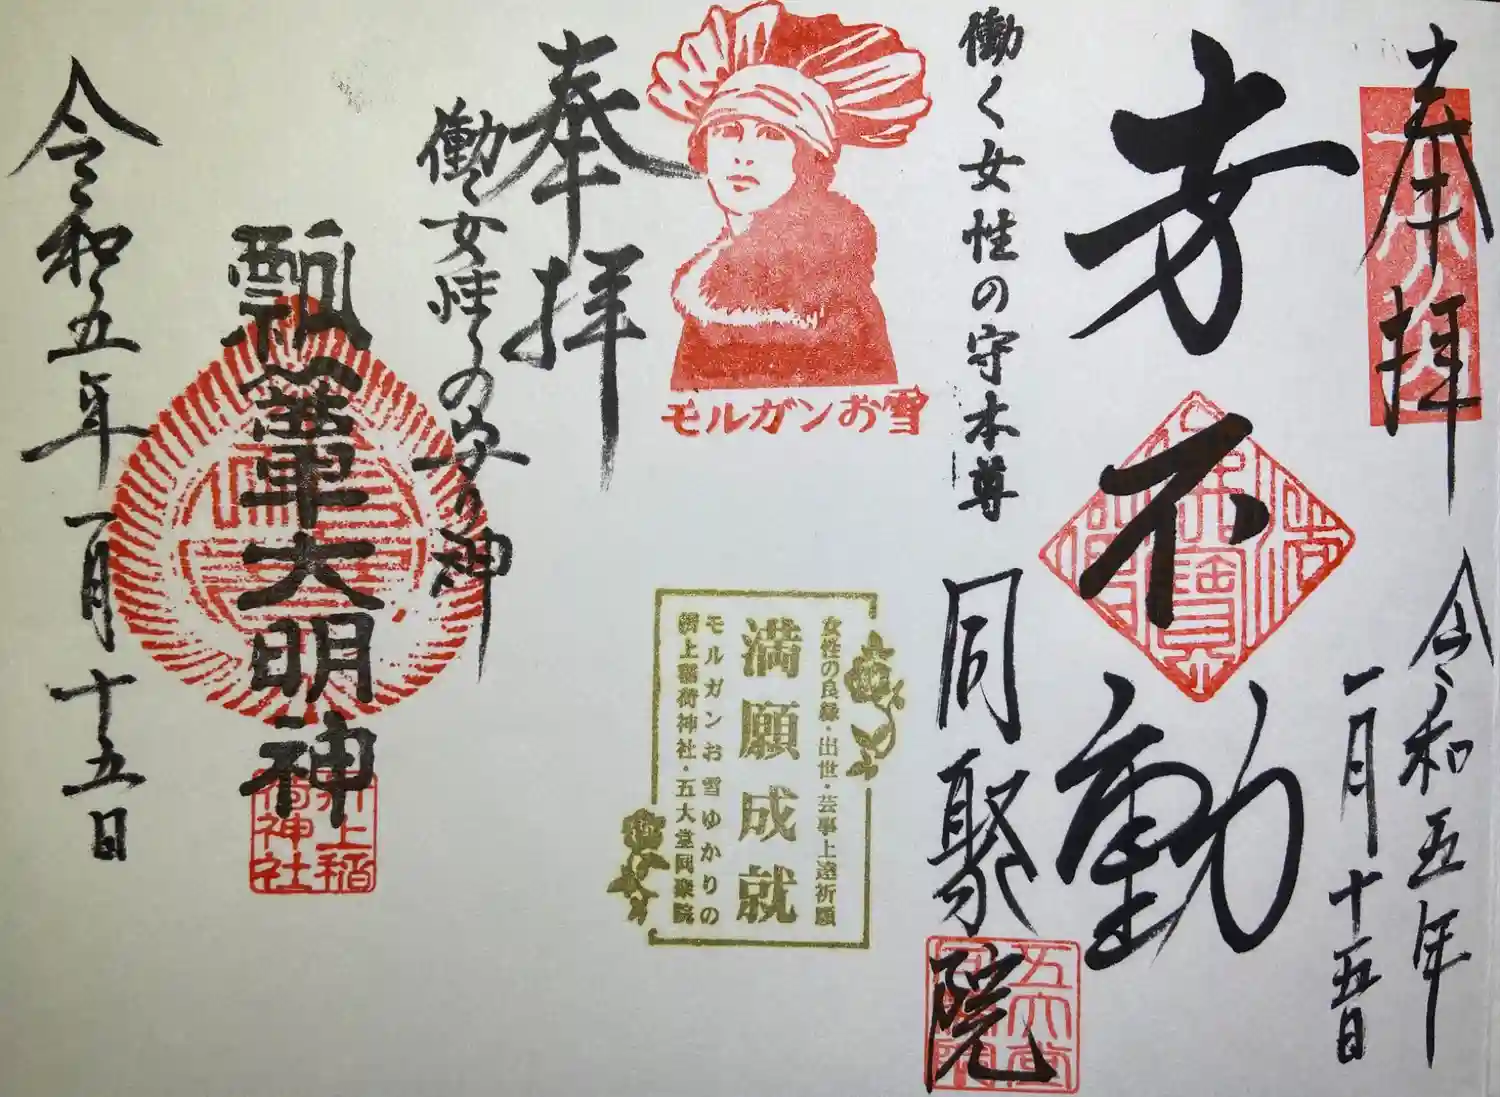 奉拝
令和五年
一月十五日
方不動
働く女性の守本尊
同聚院
五大堂
モルガンお雪
女性の良縁・出世・芸事上達祈願
満願成就
モルガンお雪ゆかりの
折上稲荷神社・五大堂同聚院
奉拝
働く女性の守り神
瓢箪大明神
折上稲荷神社
令和五年一月十五日